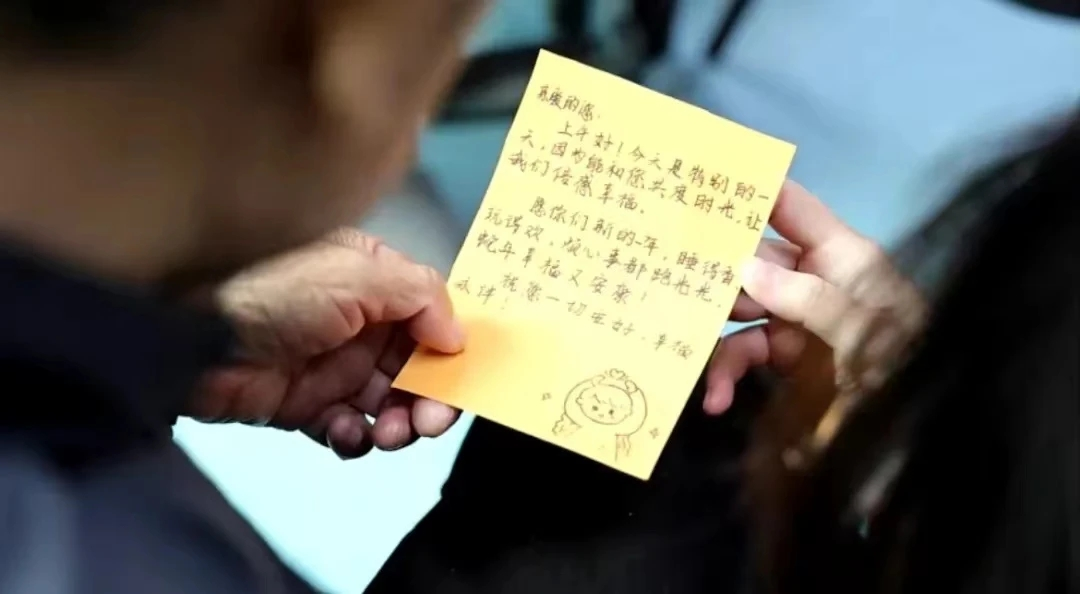 亲爱的您：
上午好！今天是特别的一
天，因为能和您共度时光，让
我们倍感幸福。
愿你们新的一年，睡得香，
玩得欢，烦心事都跑光光，
蛇年幸福又安康！
祝您一切安好，幸福
永伴！